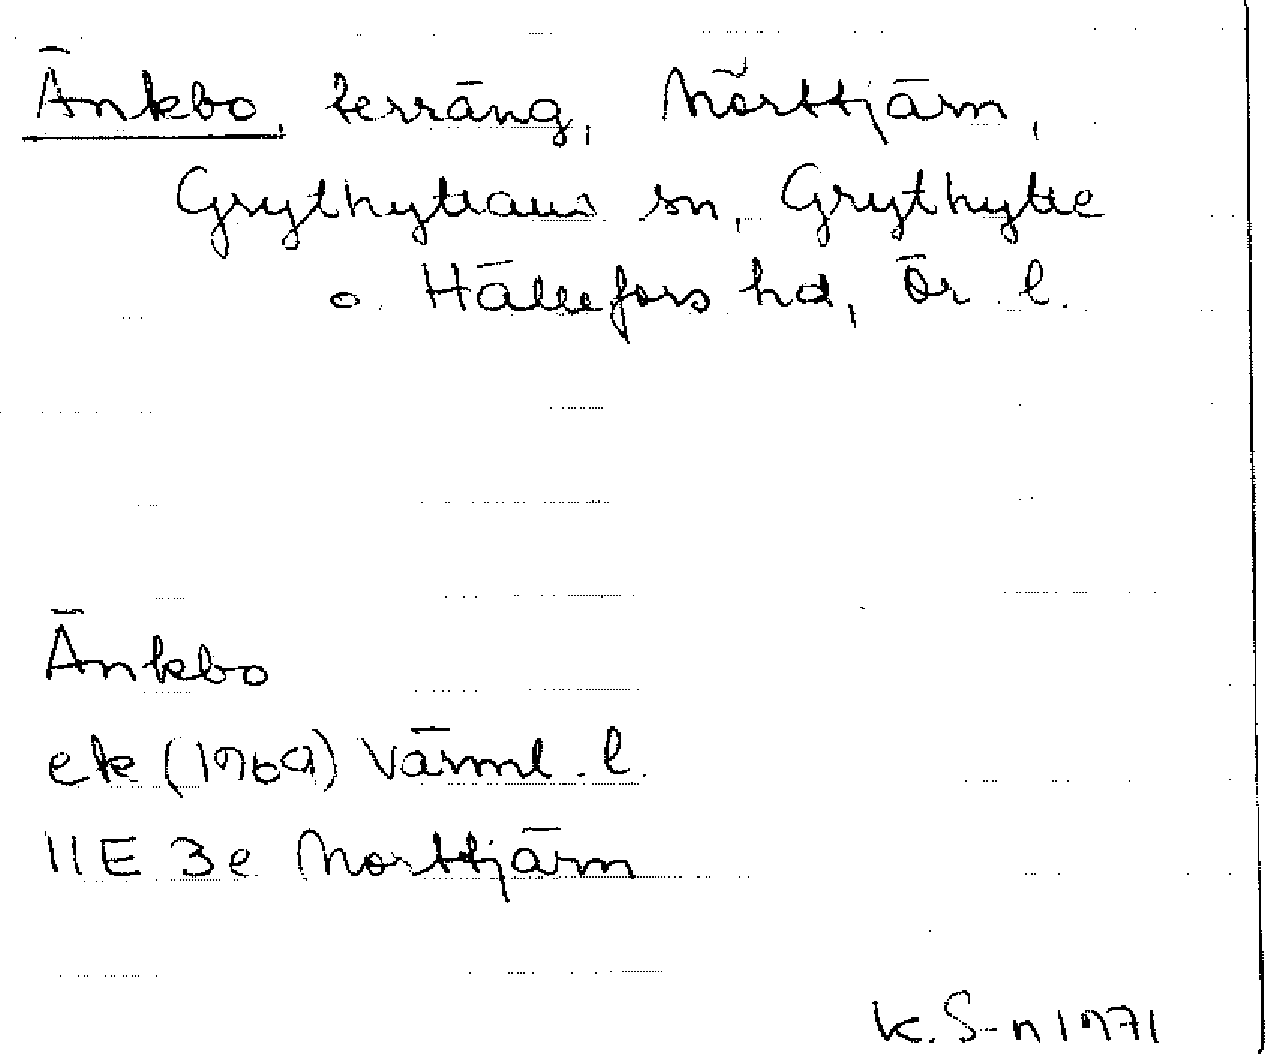 Änkbo, terräng, Norttjärn,
Grythyttans sn, Grythytte
o. Hällefors hd, Ör. l.
Änkbo
ek (1969) Värml. l.
11E 3e Norttjärn
K. S-n 1971